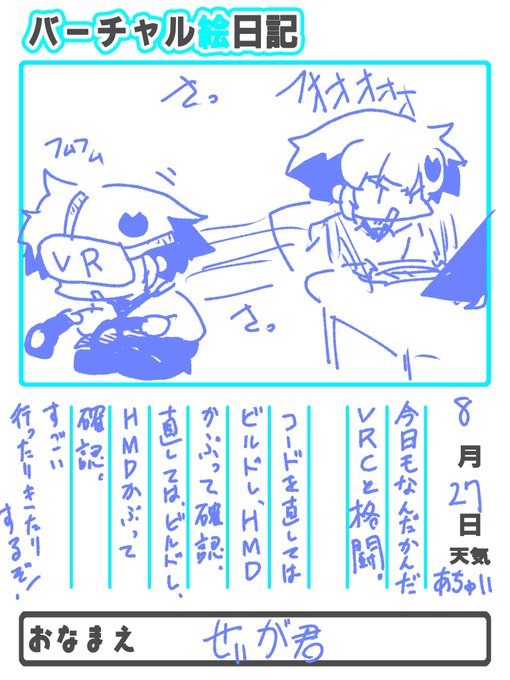 バーチャル絵日記
さっ
イオオオオオ
フムフム
VR
さっ
8月27日
天気 あちゅい
今日もなんだかんだ
VRCと格闘。
コードを直しては
ビルドし、HMD
かぶって確認、
直しては、ビルドし、
HMDかぶって
確認。
すごい
行ったりきたり
するぞ!
おなまえ
ぜいが君